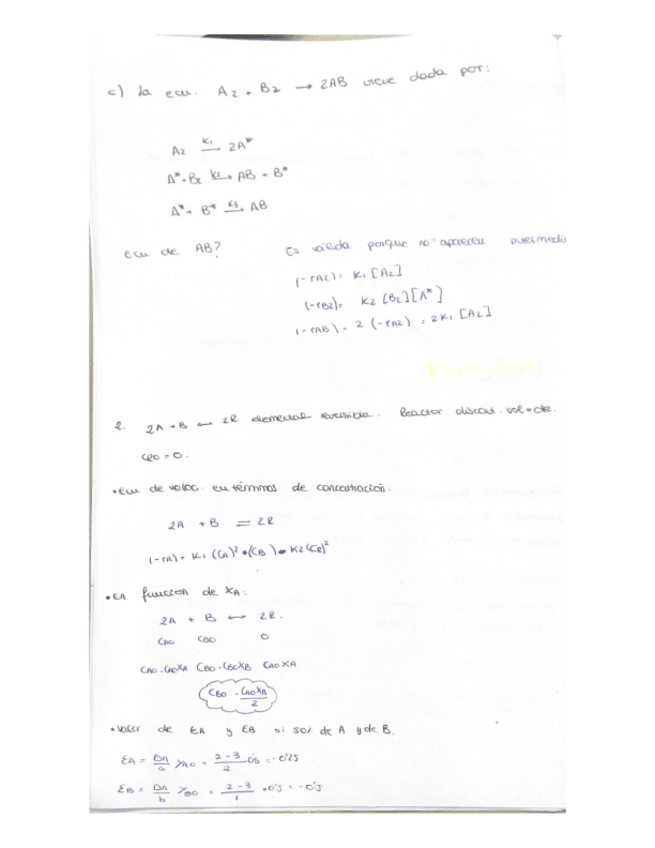 c) La ecu. A2 + B2 → 2AB viene dada por:
A2 —K1→ 2A*
A* + B2 —K2→ AB + B*
A* + B* —K3→ AB
ecu de AB? Es válida porque no aparecen intermedi
(-rA2) = K1 [A2]
(-rB2) = K2 [B2][A*]
(-rAB) = 2 (-rA2) = 2K1 [A2]
2. 2A + B ↔ 2R elemental reversible. Reactor discont. vol = cte.
CRO = 0.
• Ecu de veloc. en términos de concentración.
2A + B = 2R
(-rA) = K1 (CA)² • (CB) - K2 (CR)²
• En función de XA:
2A + B ↔ 2R.
CAO CBO 0
CAO - CAOXA CBO - CBOXB CAOXA
CBO - CAOXA/2
• Valor de EA y EB si 50% de A y de B.
EA = Δn/a yAO = 2-3/2 0'5 = -0'25
EB = Δn/b yBO = 2-3/1 • 0'5 = -0'5